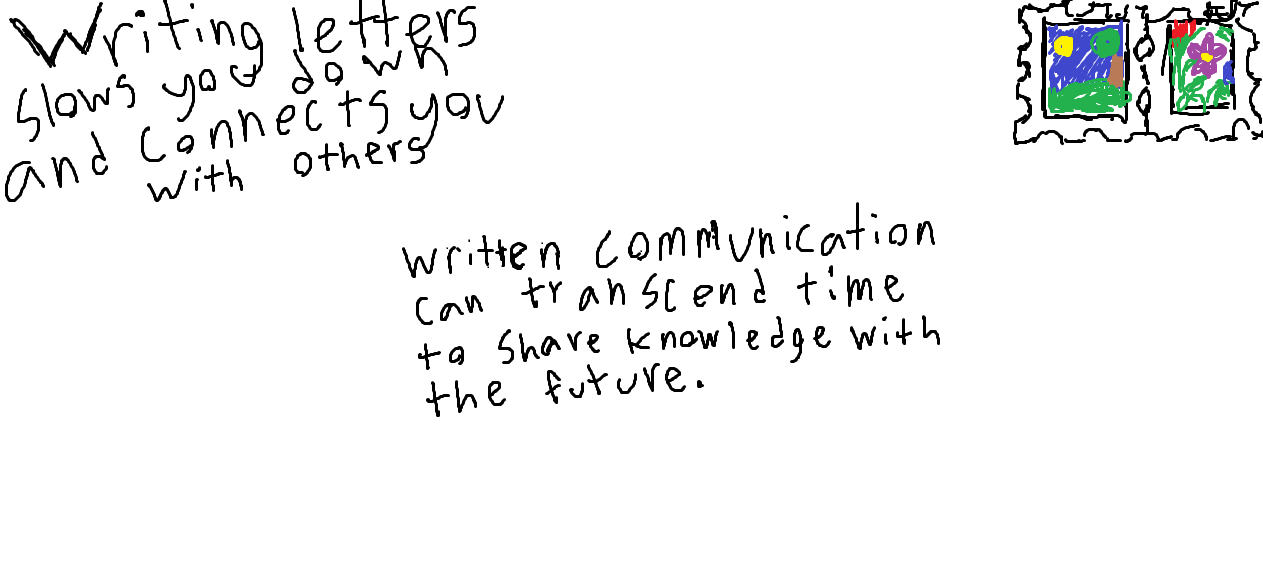 Writing letters
slows you down
and connects you
with others
written communication
can transcend time
to share knowledge with
the future.